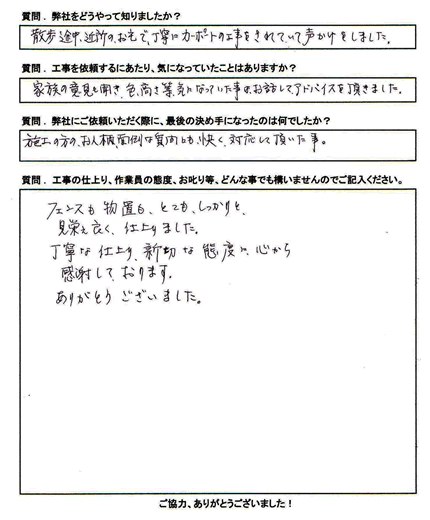 質問．弊社をどうやって知りましたか？
散歩途中、近所のお宅で、丁寧にカーポートの工事をされていて声かけをしました。
質問．工事を依頼するにあたり、気になっていたことはありますか？
家族の意見も聞き、色、高さ等気になっていた事お話してアドバイスを頂きました。
質問．弊社にご依頼いただく際に、最後の決め手になったのは何でしたか？
施工の方の、お人柄、面倒な質問にも、快く、対応して頂いた事。
質問．工事の仕上り、作業員の態度、お叱り等、どんな事でも構いませんのでご記入ください。
フェンスも物置も、とても、しっかりと、
見栄え良く、仕上りました。
丁寧な仕上り、新切な態度に、心から
感謝しております。
ありがとうございました。
ご協力、ありがとうございました！